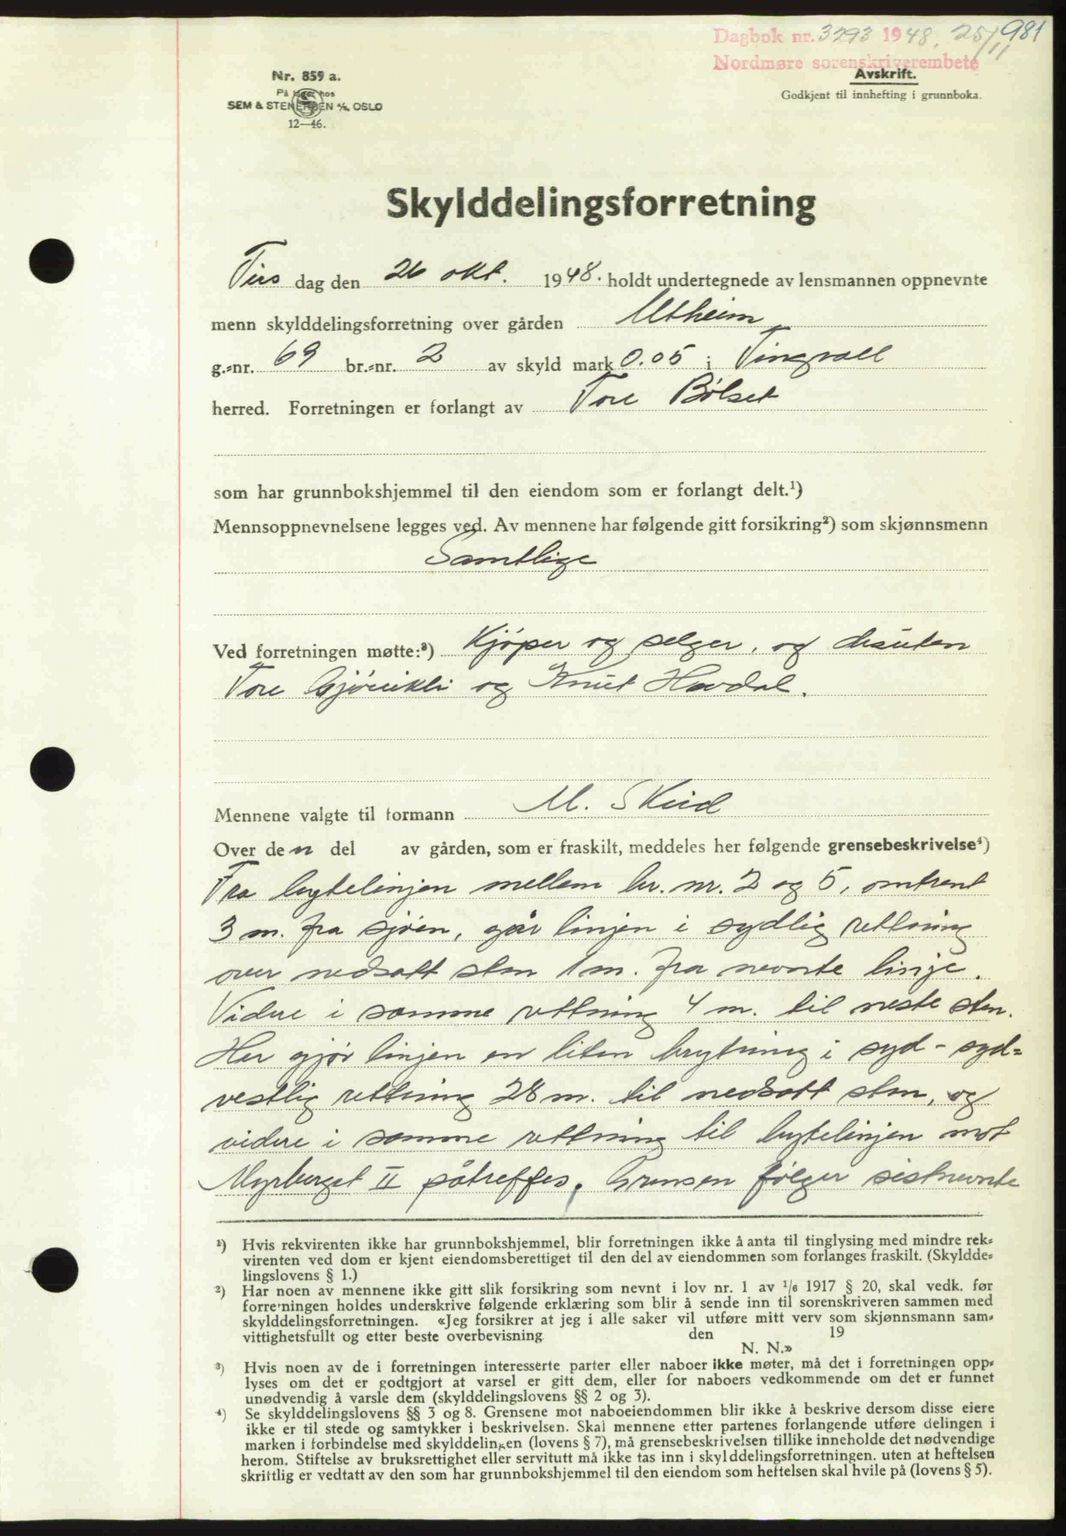 Dagbok nr. 3293 1948. 25/11 981
Nordmøre sorenskriverembete
Nr. 859 a.
På lager hos
SEM & STENERSEN A/S, OSLO
12—46.
Avskrift.
Godkjent til innhefting i grunnboka.
Skylddelingsforretning
Tirs dag den 26 okt. 1948. holdt undertegnede av lensmannen oppnevnte
menn skylddelingsforretning over gården Utheim
g.-nr. 69 br.-nr. 2 av skyld mark 0.05 i Tingvoll
herred. Forretningen er forlangt av Tore Bølset
som har grunnbokshjemmel til den eiendom som er forlangt delt.¹)
Mennsoppnevnelsene legges ved. Av mennene har følgende gitt forsikring²) som skjønnsmenn
Samtlige
Ved forretningen møtte:³) Kjøper og selger, og desuten
Tore Gjøvikli og Knut Hovdal.
Mennene valgte til formann M. Skeid
Over den del av gården, som er fraskilt, meddeles her følgende grensebeskrivelse⁴)
Fra bytelinjen mellem br. nr. 2 og 5, omtrent
3 m. fra sjøen, går linjen i sydlig rettning
over nedsatt sten 1 m. fra nevnte linje.
Videre i samme rettning 4 m. til neste sten.
Her gjør linjen en liten brytning i syd-syd=
vestlig rettning 28 m. til nedsatt sten, og
videre i samme rettning til bytelinjen mot
Myrberget II påtreffes. Grensen følger sistnevnte
¹) Hvis rekvirenten ikke har grunnbokshjemmel, blir forretningen ikke å anta til tinglysing med mindre rek-
virenten ved dom er kjent eiendomsberettiget til den del av eiendommen som forlanges fraskilt. (Skyldde-
lingslovens § 1.)
²) Har noen av mennene ikke gitt slik forsikring som nevnt i lov nr. 1 av 1/6 1917 § 20, skal vedk. før
forretningen holdes underskrive følgende erklæring som blir å sende inn til sorenskriveren sammen med
skylddelingsforretningen. «Jeg forsikrer at jeg i alle saker vil utføre mitt verv som skjønnsmann sam-
vittighetsfullt og etter beste overbevisning den 19
N. N.»
³) Hvis noen av de i forretningen interesserte parter eller naboer ikke møter, må det i forretningen opp-
lyses om det er godtgjort at varsel er gitt dem, eller for naboers vedkommende om det er funnet
unødvendig å varsle dem (skylddelingslovens §§ 2 og 3).
⁴) Se skylddelingslovens §§ 3 og 8. Grensene mot naboeiendommen blir ikke å beskrive dersom disse eiere
ikke er til stede og samtykker i beskrivelsen. Skal mennene etter partenes forlangende utføre delingen i
marken i forbindelse med skylddelingen (lovens § 7), må grensebeskrivelsen tillike inneholde det nødvendige
herom. Stiftelse av bruksrettighet eller servitutt må ikke tas inn i skylddelingsforretningen. uten at heftelsen
skriftlig er vedtatt av den som har grunnbokshjemmel til den eiendom som heftelsen skal hvile på (lovens § 5).